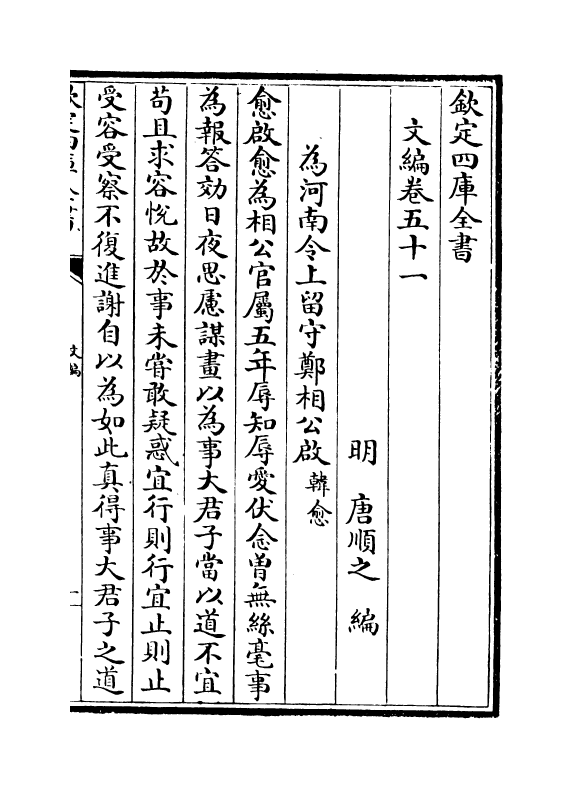 欽定四庫全書
文編卷五十一
明 唐順之 編
為河南令上留守鄭相公啟 韓愈
愈啟愈為相公官屬五年辱知辱愛伏念曽無絲毫事
為報答効日夜思慮謀畫以為事大君子當以道不宜
苟且求容悅故於事未嘗敢疑惑宜行則行宜止則止
受容受察不復進謝自以為如此真得事大君子之道
文編